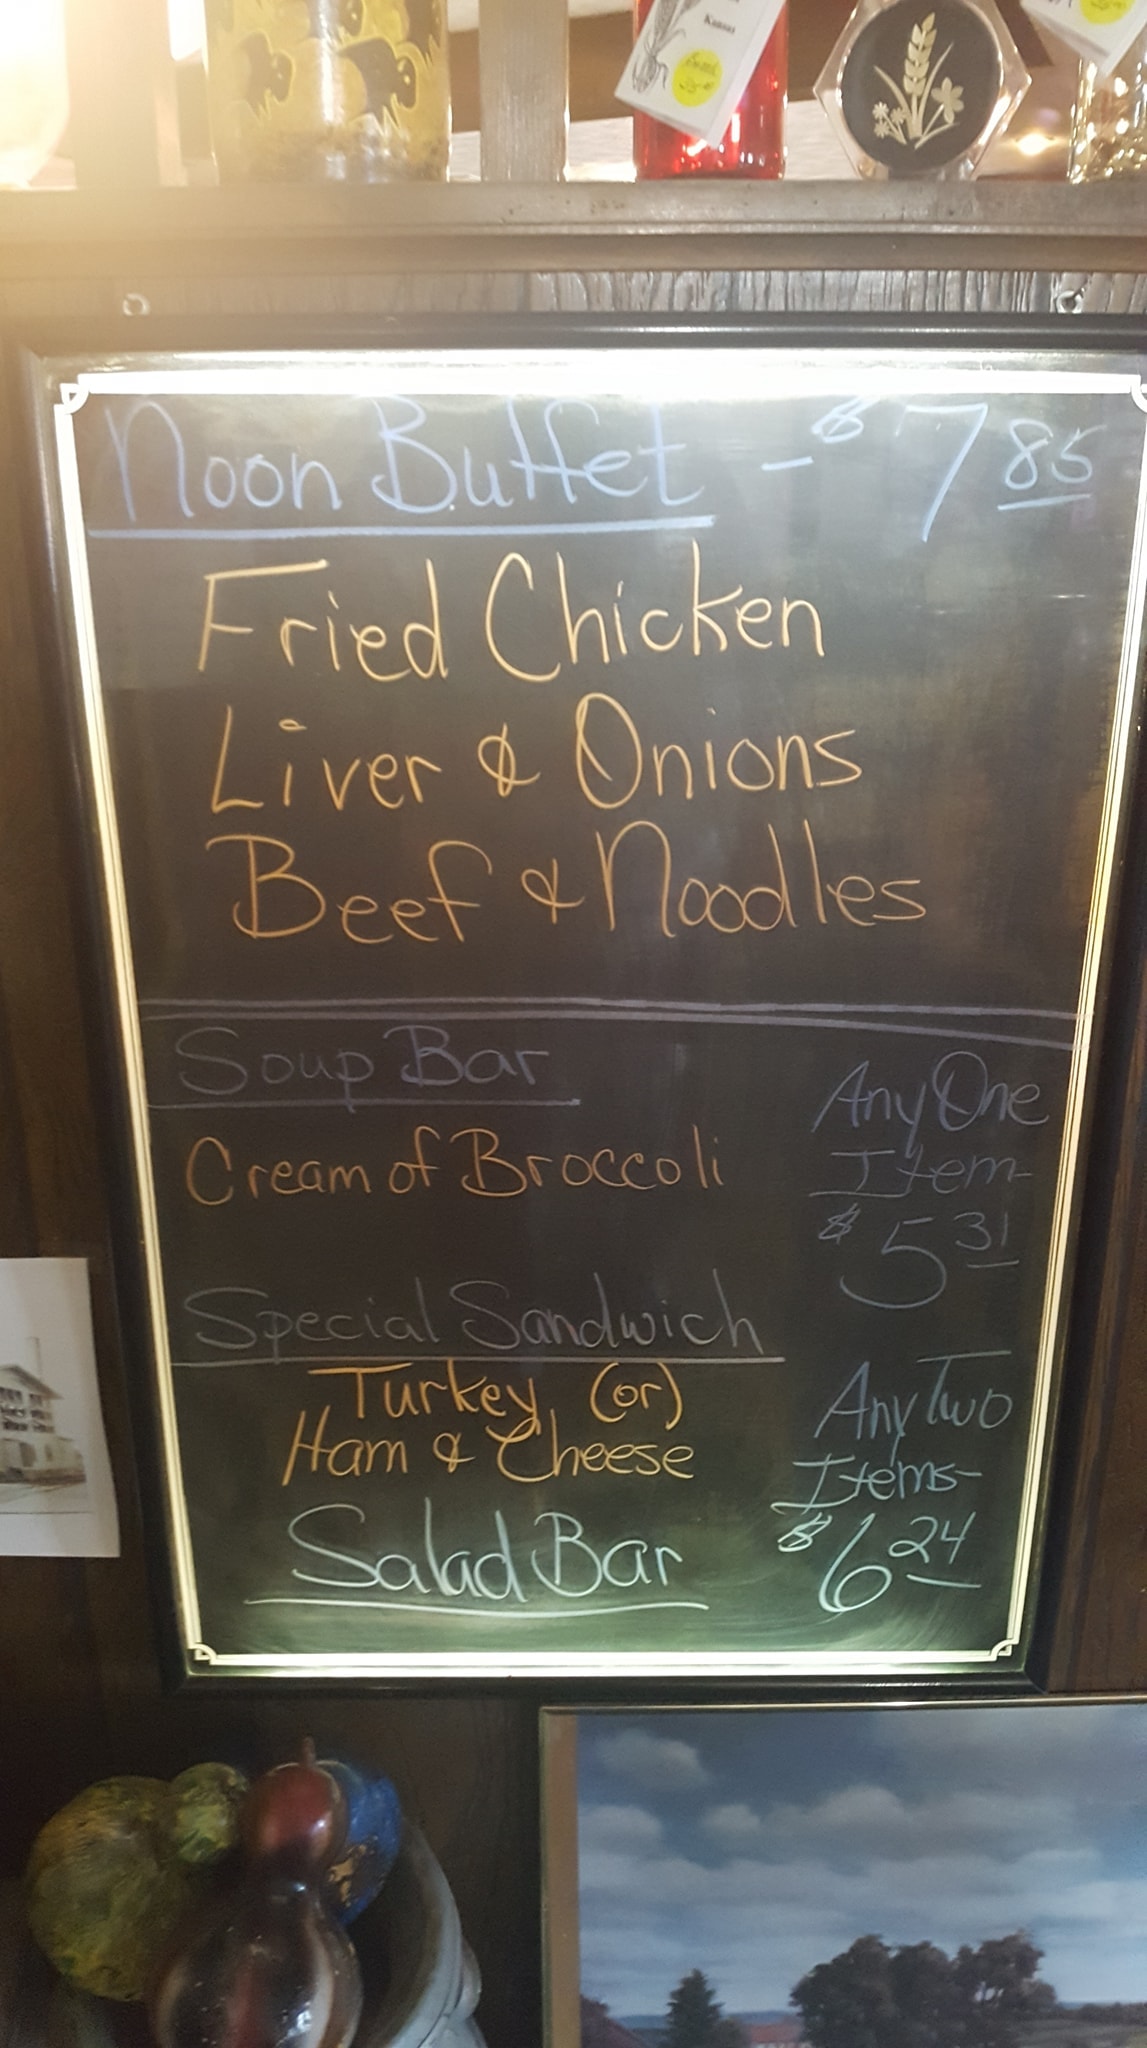 Kansas
Noon Buffet - $7 85
Fried Chicken
Liver & Onions
Beef & Noodles
Soup Bar
Cream of Broccoli
Any One
Item-
$5 31
Special Sandwich
Turkey (or)
Ham & Cheese
Any Two
Items-
$6 24
Salad Bar